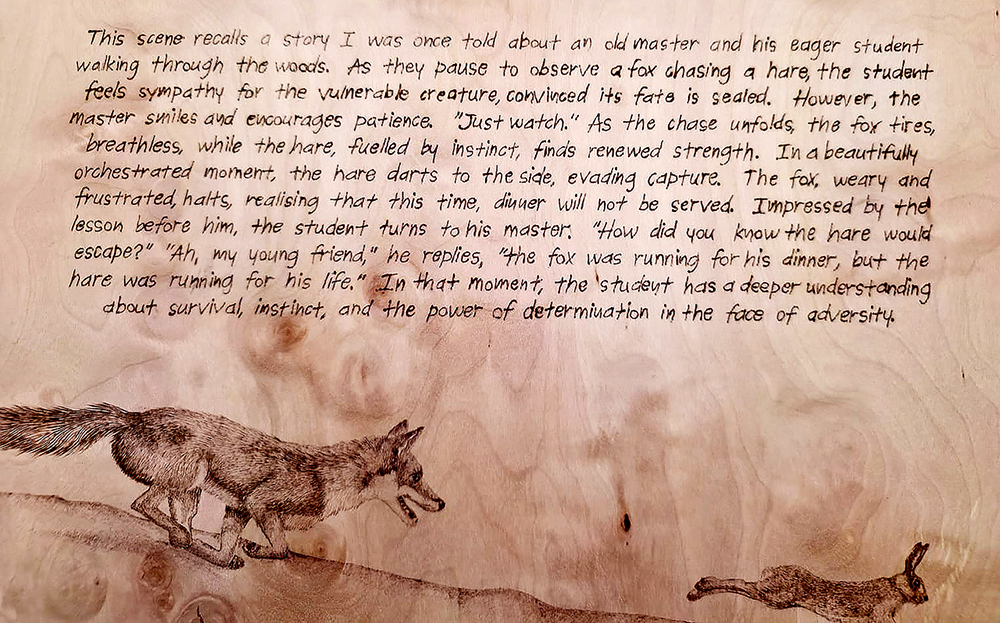 This scene recalls a story I was once told about an old master and his eager student
walking through the woods. As they pause to observe a fox chasing a hare, the student
feels sympathy for the vulnerable creature, convinced its fate is sealed. However, the
master smiles and encourages patience. "Just watch." As the chase unfolds, the fox tires,
breathless, while the hare, fuelled by instinct, finds renewed strength. In a beautifully
orchestrated moment, the hare darts to the side, evading capture. The fox, weary and
frustrated, halts, realising that this time, dinner will not be served. Impressed by the
lesson before him, the student turns to his master. "How did you know the hare would
escape?" "Ah, my young friend," he replies, "the fox was running for his dinner, but the
hare was running for his life." In that moment, the student has a deeper understanding
about survival, instinct, and the power of determination in the face of adversity.